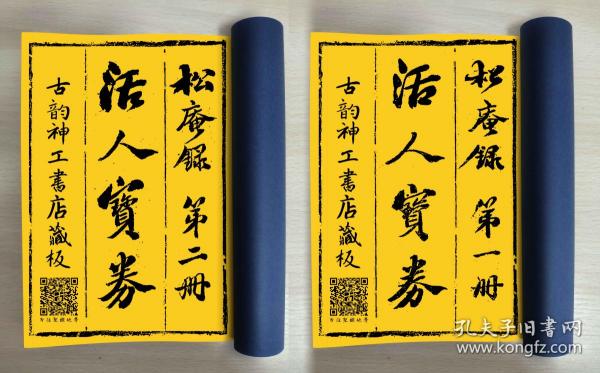 松庵録 第二册
活人寶券
古韵神工書店藏板
松庵録 第一册
活人寶券
古韵神工書店藏板
孔夫子旧书网
www.kongfz.com